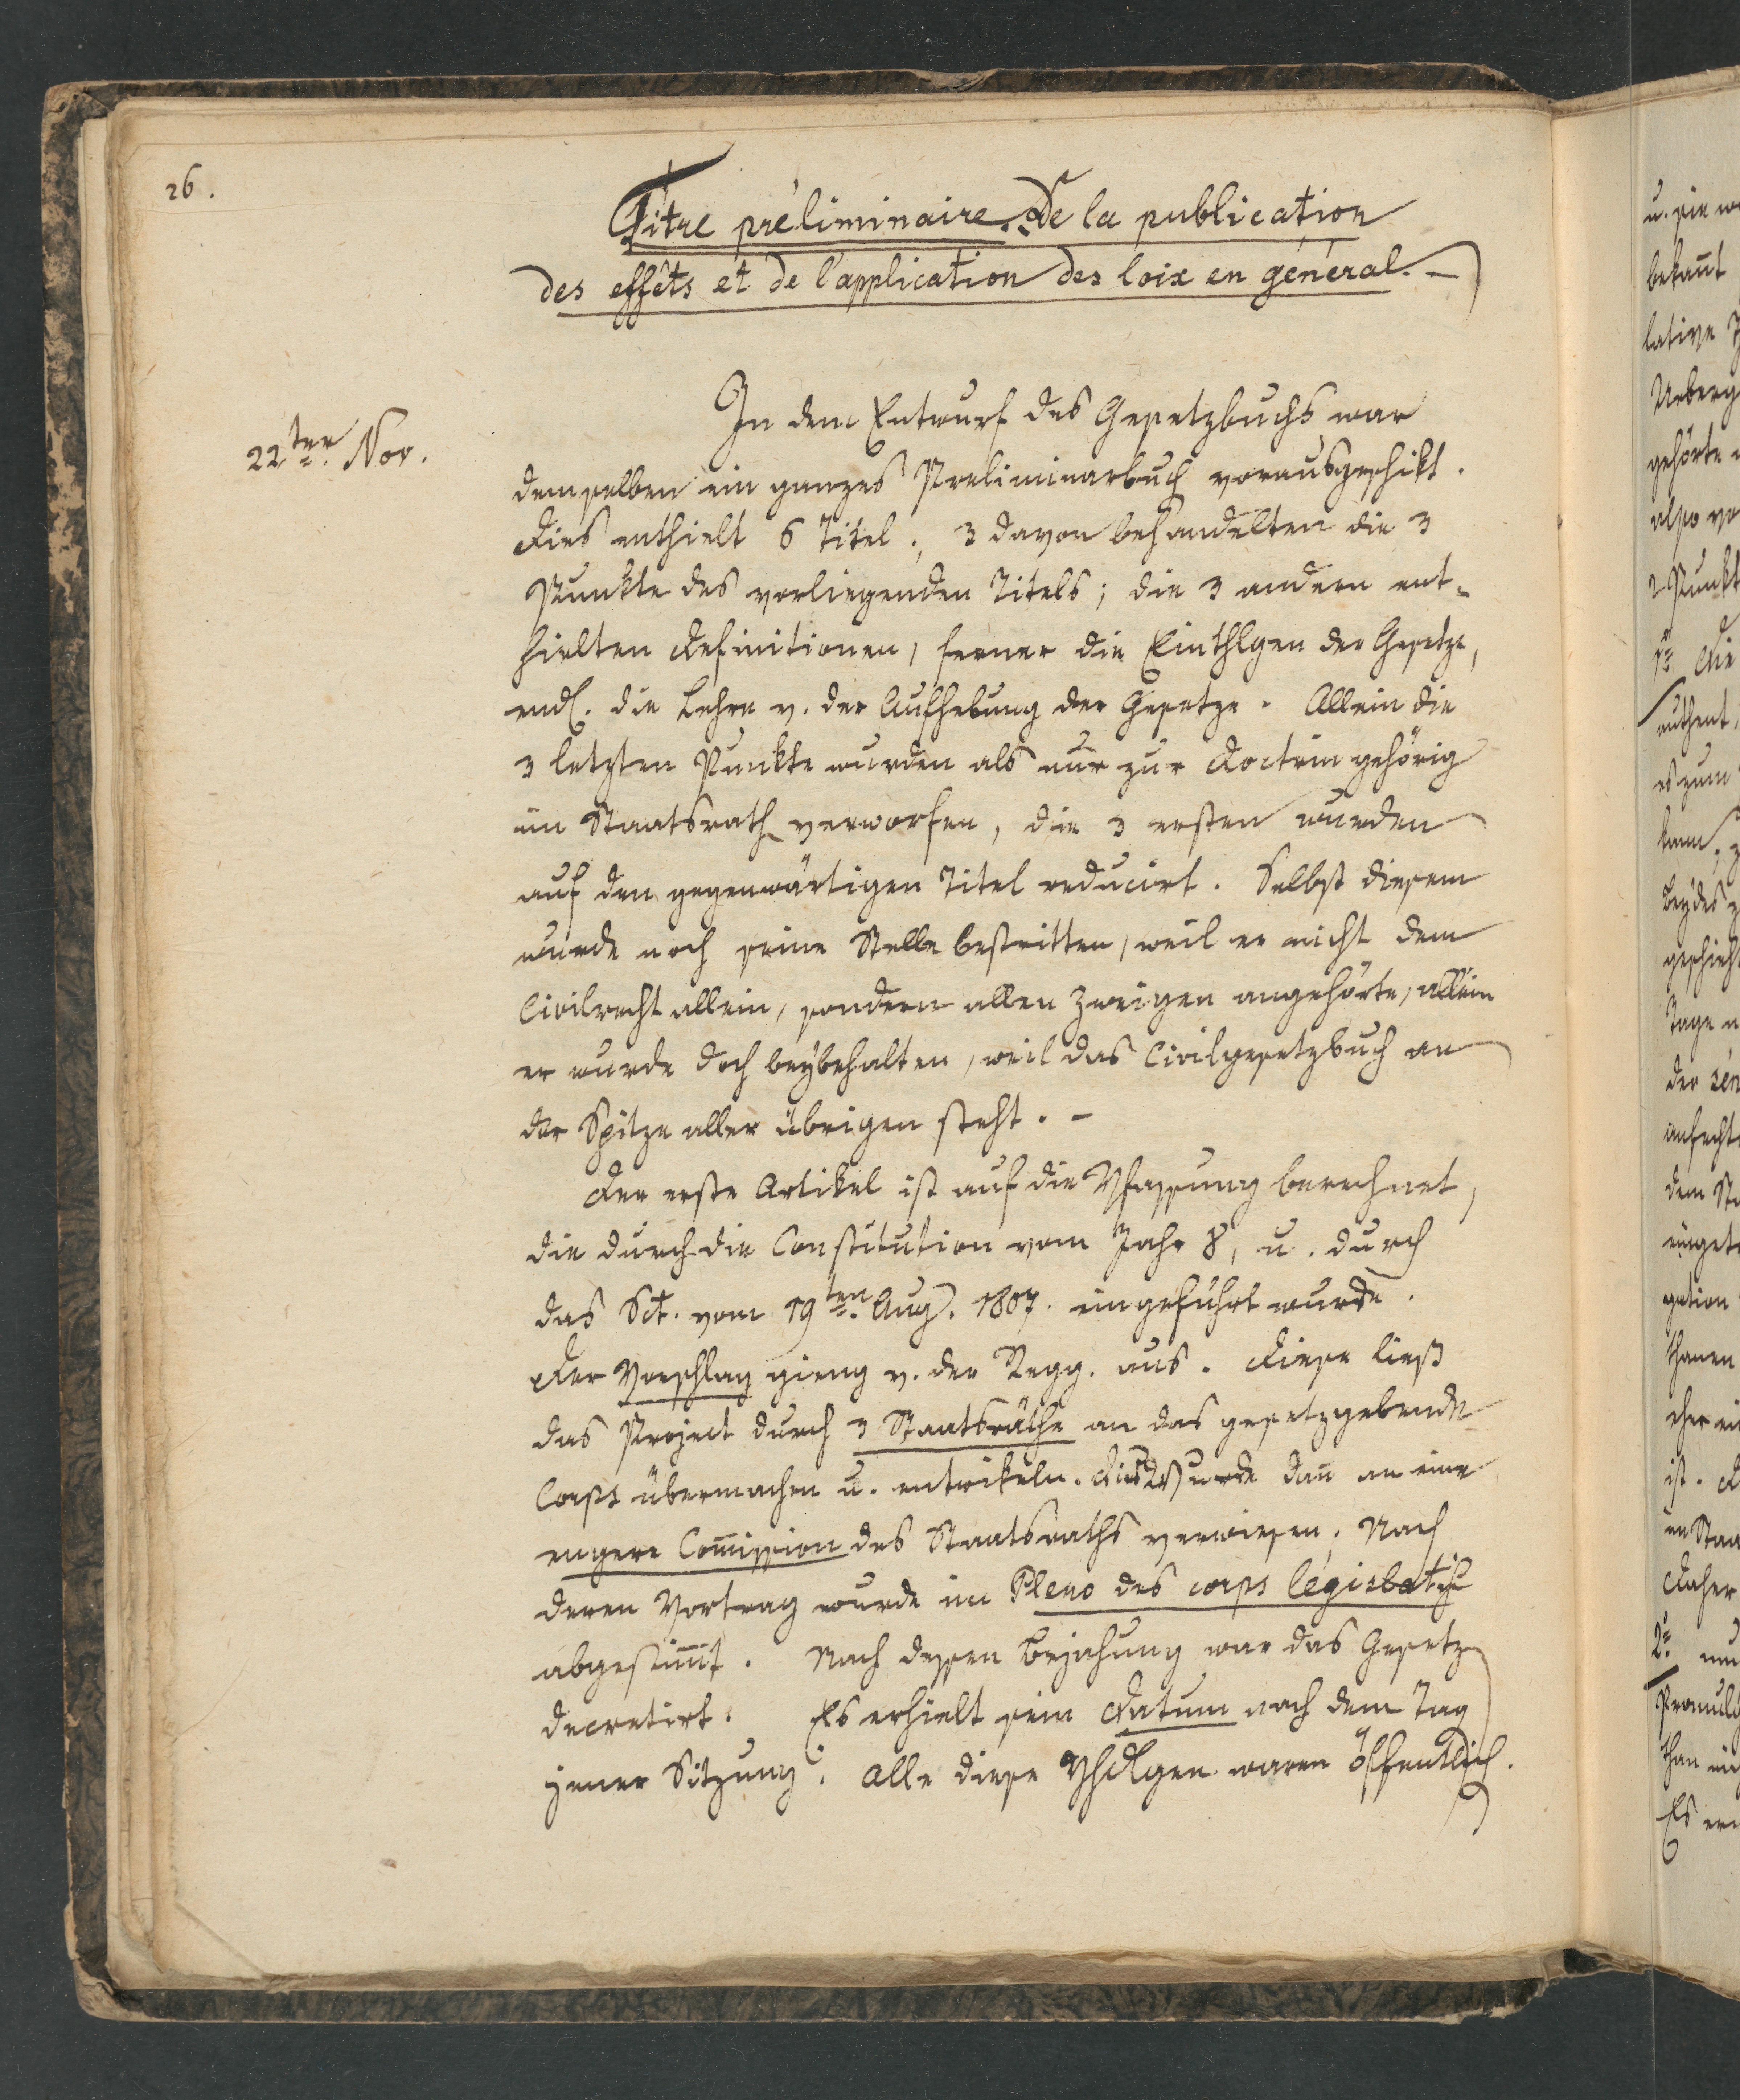 26.
Titre préliminaire. De la publication
des effêts et de l'application des loix en général. –
22ter Nov.
In dem Entwurf des Gesetzbuchs war
demselben ein ganzes Preliminarbuch vorausgeschikt.
Dies enthielt 6 Titel; 3 davon behandelten die 3
Punkte des vorliegenden Titels; die 3 andern ent-
hielten Definitionen, ferner die Einthlgen der Gesetze,
endl. die Lehre v. der Aufhebung der Gesetze. Allein die
3 letzten Punkte wurden als nur zur Doctrin gehörig
im Staatsrath verworfen, die 3 ersten wurden
auf den gegenwärtigen Titel reducirt. Selbst diesem
wurde noch seine Stelle bestritten, weil er nicht dem
Civilrecht allein, sondern allen Zweigen angehörte, allein
er wurde doch beybehalten, weil das Civilgesetzbuch an
der Spitze aller übrigen steht. –
Der erste Artikel ist auf die Vfassung berechnet,
die durch die Constitution vom Jahr 8, u. durch
das Sct. vom 19ten Aug. 1807. eingeführt wurde.
Der Vorschlag gieng v. der Regg. aus. Diese ließ
das Project durch 3 Staatsräthe an das gesetzgebende
Corps übermachen u. entwikeln. Dies wurde dan̄ an eine
engere Com̄ission des Staatsraths verwiesen. Nach
deren Vortrag wurde im Pleno des corps législatif
abgestim̄t. Nach dessen Bejahung war das Gesetz
decretirt. Es erhielt sein Datum nach dem Tag
jener Sitzung. Alle diese Vhdlgen waren öffentlich.
u. sie
bekan̄t
lative
Ueberg
gehörte
also
2 Punkt
1o Die
authent
es zum
kam,
beydes
geschieh
Tage
der sén
anfecht
dem St
einget
gation
thanen
cher
ist. D
en Staa
Daher
2o
Promulg
than
Es